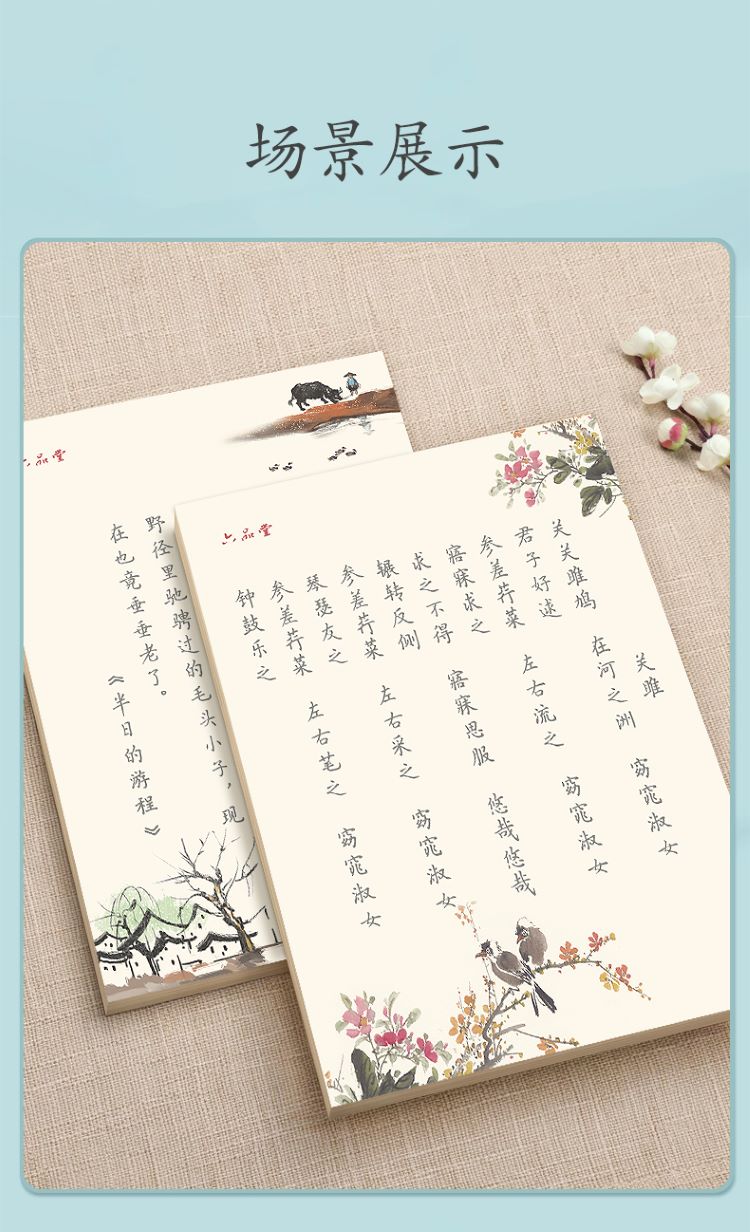 场景展示
六品堂
野径里驰骋过的毛头小子，现
在也竟垂垂老了。
《半日的游程》
六品堂
关雎
关关雎鸠 在河之洲 窈窕淑女
君子好逑
参差荇菜 左右流之 窈窕淑女
寤寐求之
求之不得 寤寐思服 悠哉悠哉
辗转反侧
参差荇菜 左右采之 窈窕淑女
琴瑟友之
参差荇菜 左右笔之 窈窕淑女
钟鼓乐之